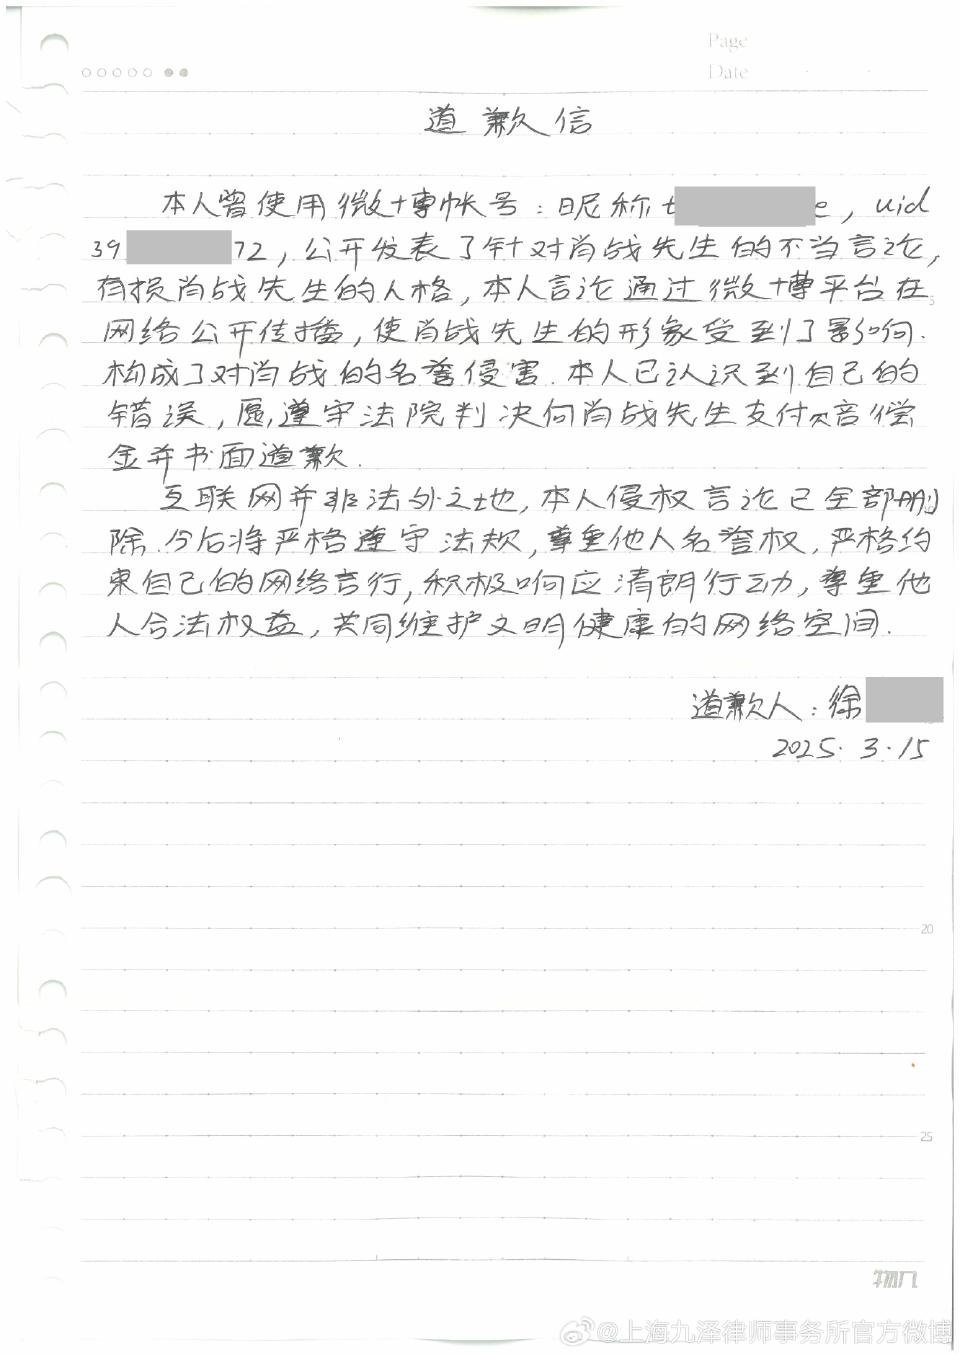 Page
Date
道歉信
本人曾使用微博帐号：昵称t e，uid
39 72，公开发表了针对肖战先生的不当言论，
有损肖战先生的人格，本人言论通过微博平台在
网络公开传播，使肖战先生的形象受到了影响.
构成了对肖战的名誉侵害.本人已认识到自己的
错误，愿遵守法院判决向肖战先生支付赔偿
金并书面道歉.
互联网并非法外之地，本人侵权言论已全部删
除.今后将严格遵守法规，尊重他人名誉权，严格约
束自己的网络言行，积极响应清朗行动，尊重他
人合法权益，共同维护文明健康的网络空间.
道歉人：徐
2025.3.15
20
25
@上海九泽律师事务所官方微博